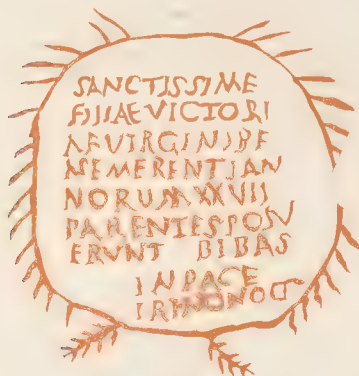 SANCTISSIME
FILIAE VICTORI
AE VIRGINI BE
NEMERENTI AN
NORUM XXVII
PARENTES POSV
ERVNT BIBAS
IN PACE